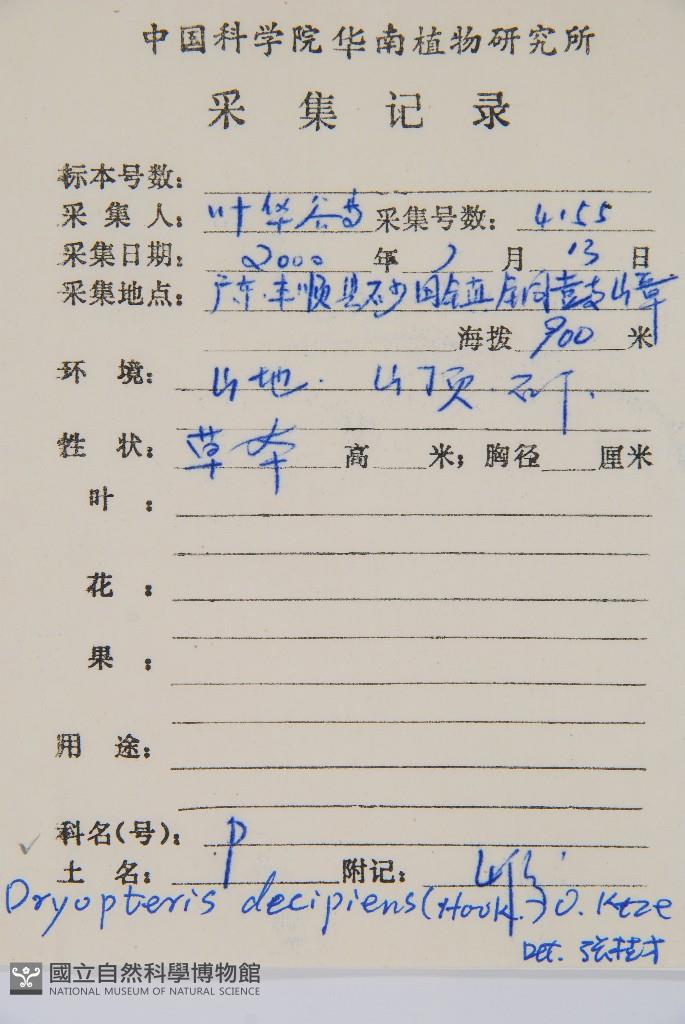 中国科学院华南植物研究所
采集记录
标本号数：
采集人：叶华谷等 采集号数：4155
采集日期：2000年7月13日
采集地点：广东.丰顺县砂田镇铜鼓嶂
海拨 900 米
环境：山地.山顶.
性状：草本 高 米；胸径 厘米
叶：
花：
果：
用途：
科名(号)：P
土名： 附记：
Dryopteris decipiens (Hook.) O. Ktze
Det. 张桂才
國立自然科學博物館
NATIONAL MUSEUM OF NATURAL SCIENCE